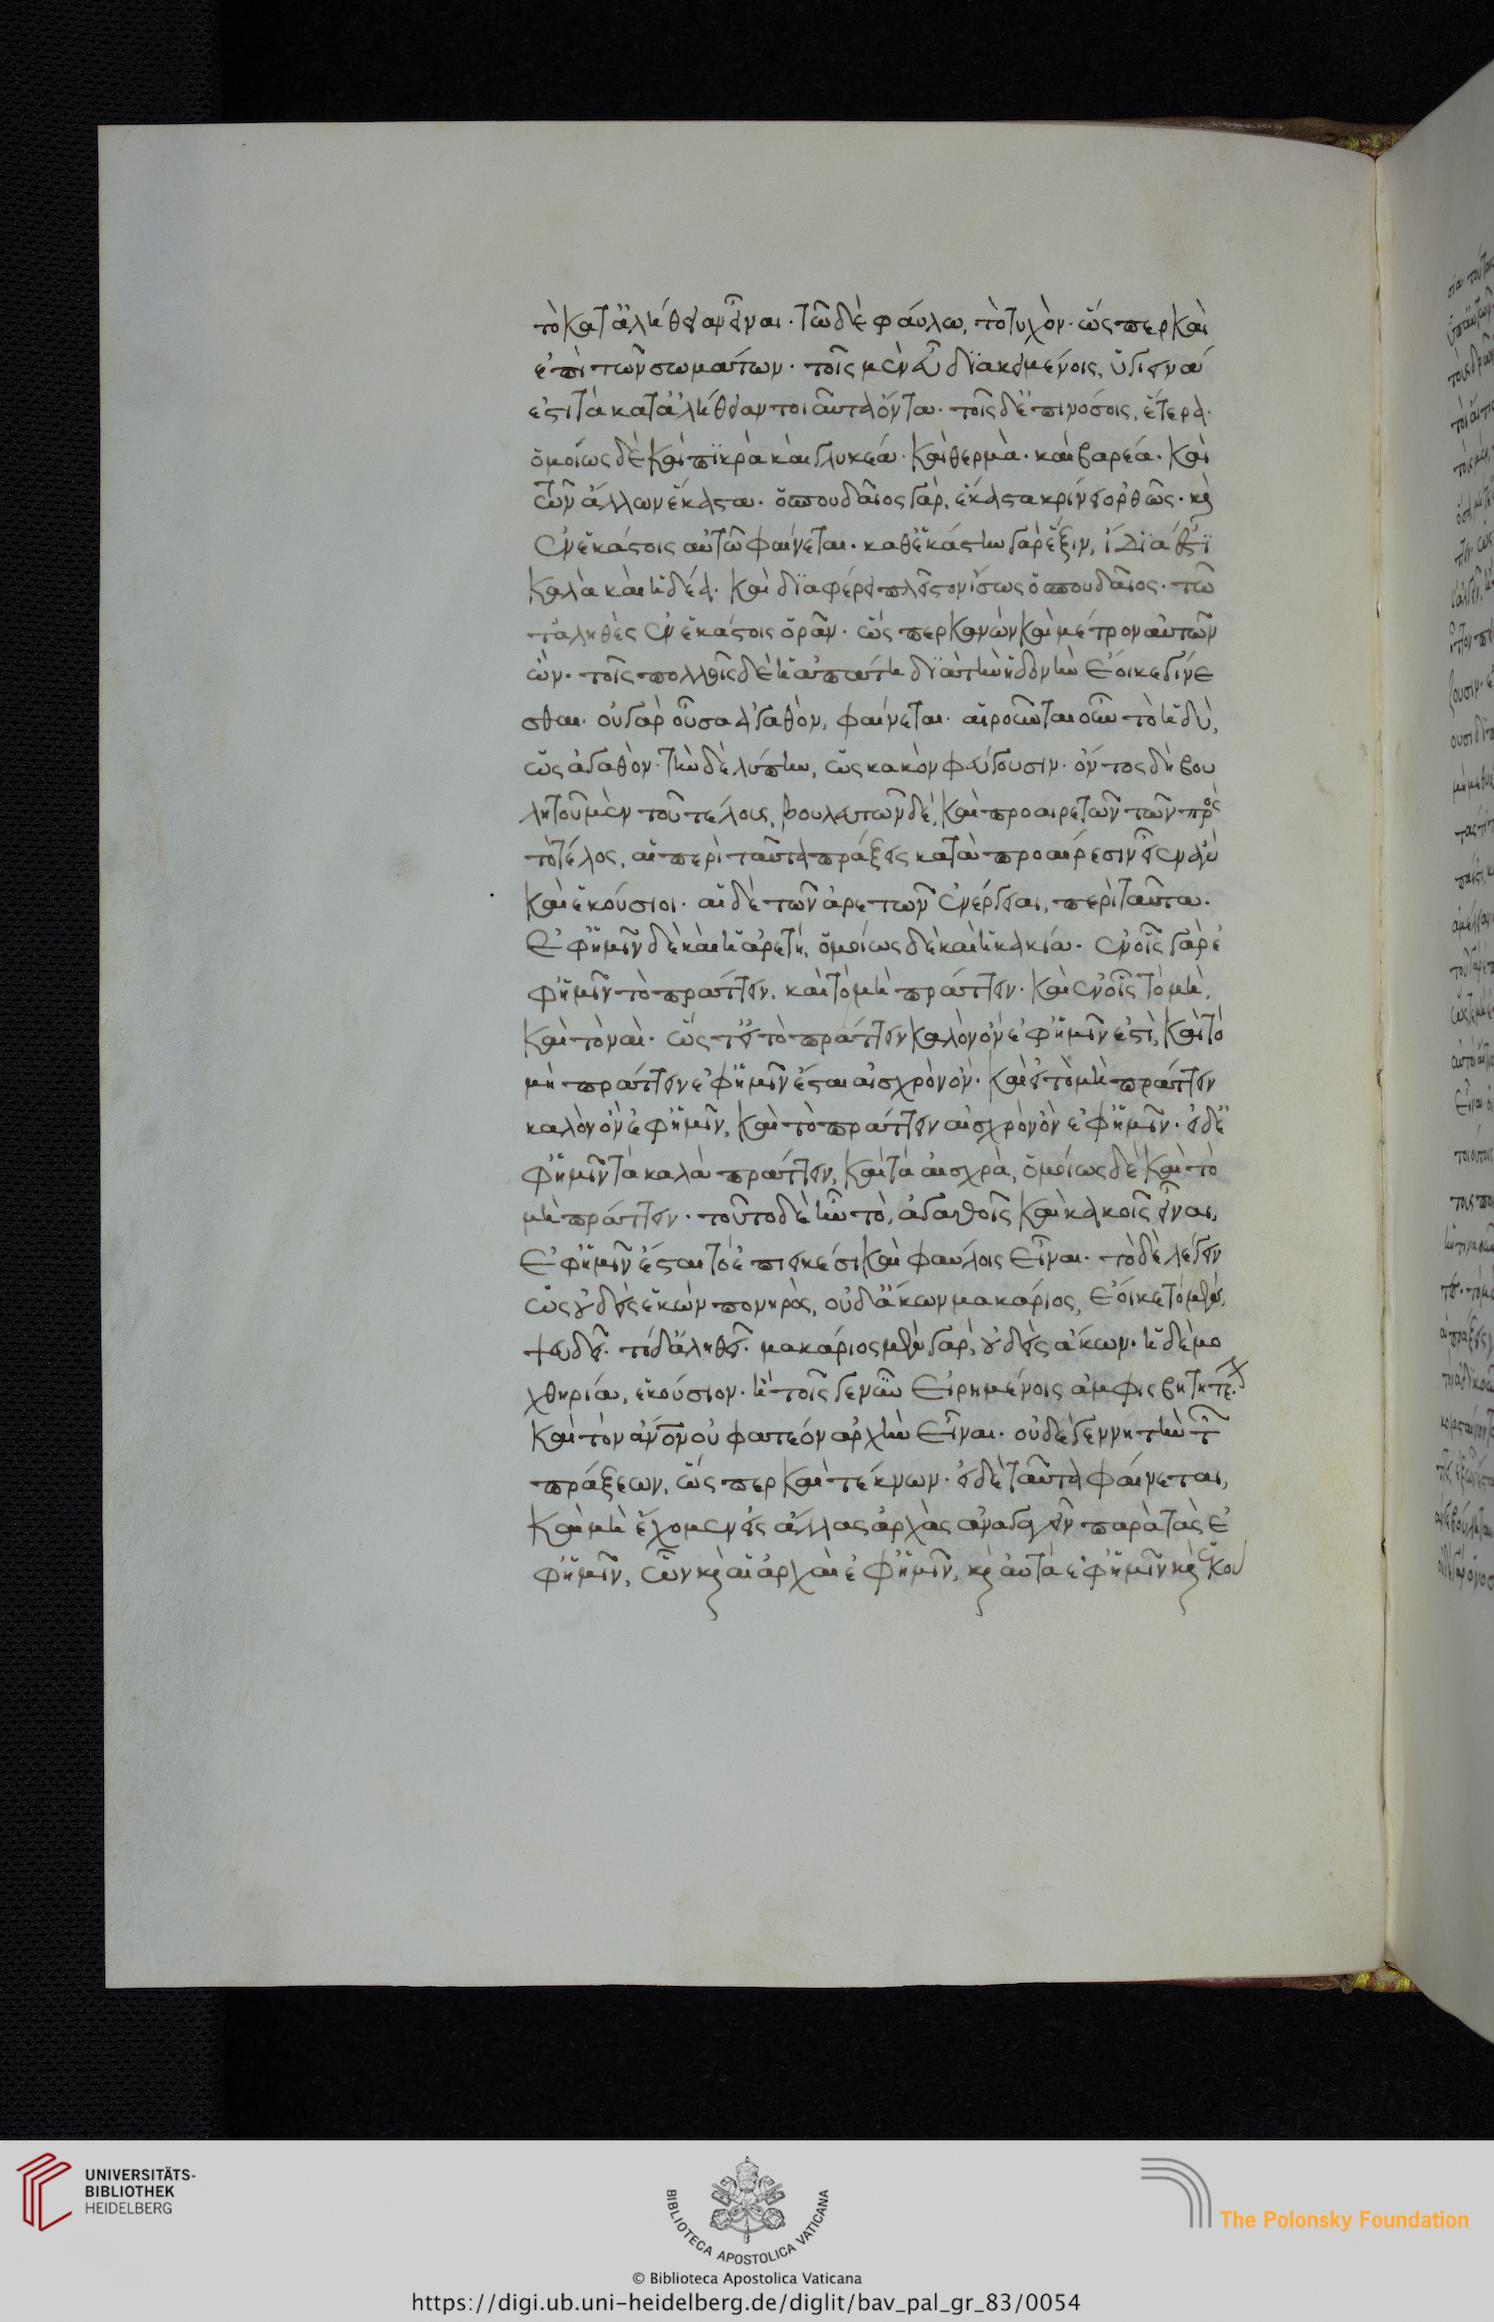 τὸ κατ' ἀλήθειαν εἶναι· τῶ δὲ φαύλω, τὸ τυχὸν· ὥσπερ καὶ
ἐπὶ τῶν σωμάτων· τοῖς μὲν εὖ διακειμένοις, ὑγιεινά
ἐστι τὰ κατ' ἀλήθειαν τοιαῦτα ὄντα· τοῖς δ' ἐπινόσοις, ἕτερα·
ὁμοίως δὲ καὶ πικρὰ καὶ γλυκέα· καὶ θερμὰ· καὶ βαρέα· καὶ
τῶν ἄλλων ἕκαστα· ὁ σπουδαῖος γὰρ, ἕκαστα κρίνει ὀρθῶς· κỳ
ἐν ἑκάστοις αὐτῶ φαίνεται· καθ' ἑκάστην γὰρ ἕξιν, ἴδια ἐστὶ
καλὰ καὶ ἡδέα· καὶ διαφέρει πλεῖστον ἴσως ὁ σπουδαῖος· τῶ
τἀληθὲς ἐν ἑκάστοις ὁρᾶν· ὥσπερ κανὼν καὶ μέτρον αὐτῶν
ὢν· τοῖς πολλοῖς δὲ ἡ ἀπάτη διὰ τὴν ἡδονὴν ἔοικε γίνε
σθαι· οὐ γὰρ οὖσα ἀγαθὸν, φαίνεται· αἱροῦνται οὖν τὸ ἡδὺ,
ὡς ἀγαθὸν· τὴν δὲ λύπην, ὡς κακὸν φεύγουσιν· ὄντος δὴ βου
λητοῦ μὲν τοῦ τέλους, βουλευτῶν δὲ, καὶ προαιρετῶν τῶν πρὸς
τὸ τέλος, αἱ περὶ ταῦτα πράξεις κατὰ προαίρεσιν εἶεν ἂν
καὶ ἑκούσιοι· αἱ δὲ τῶν ἀρετῶν ἐνέργειαι, περὶ ταῦτα·
ἐφ' ἡμῖν δὲ καὶ ἡ ἀρετὴ, ὁμοίως δὲ καὶ ἡ κακία· ἐν οἷς γὰρ ἐ
φ' ἡμῖν τὸ πράττειν, καὶ τὸ μὴ πράττειν· καὶ ἐν οἷς τὸ μὴ,
καὶ τὸ ναὶ· ὥστ' εἰ τὸ πράττειν καλὸν ὂν ἐφ' ἡμῖν ἐστὶ, καὶ τὸ
μὴ πράττειν ἐφ' ἡμῖν ἔσται αἰσχρὸν ὂν· καὶ εἰ τὸ μὴ πράττειν
καλὸν ὂν ἐφ' ἡμῖν, καὶ τὸ πράττειν αἰσχρὸν ὂν ἐφ' ἡμῖν· εἰ δ' ἐ
φ' ἡμῖν τὰ καλὰ πράττειν, καὶ τὰ αἰσχρὰ, ὁμοίως δὲ καὶ τὸ
μὴ πράττειν· τοῦτο δὲ ἦν τὸ, ἀγαθοῖς καὶ κακοῖς εἶναι,
ἐφ' ἡμῖν ἔσται τὸ ἐπιεικέσι καὶ φαύλοις εἶναι· τὸ δὲ λέγειν
ὡς οὐδεὶς ἑκὼν πονηρὸς, οὐδ' ἄκων μακάριος, ἔοικε τὸ μὲν,
ψευδεῖ· τὸ δ' ἀληθεῖ· μακάριος μὲν γὰρ, οὐδεὶς ἄκων· ἡ δὲ μο
χθηρία, ἑκούσιον· ἢ τοῖς γε νῦν εἰρημένοις ἀμφισβητητέ·
καὶ τὸν ἄνον οὐ φατέον ἀρχὴν εἶναι· οὐδὲ γεννητὴν τ
πράξεων, ὥσπερ καὶ τέκνων· εἰ δὲ ταῦτα φαίνεται,
καὶ μὴ ἔχομεν εἰς ἄλλας ἀρχὰς ἀναγαγεῖν παρὰ τὰς ἐ
φ' ἡμῖν, ὧν κỳ αἱ ἀρχαὶ ἐφ' ἡμῖν, κỳ αὐτὰ ἐφ' ἡμῖν κỳ ἑκου
UNIVERSITÄTS-
BIBLIOTHEK
HEIDELBERG
BIBLIOTECA APOSTOLICA VATICANA
The Polonsky Foundation
© Biblioteca Apostolica Vaticana
https://digi.ub.uni-heidelberg.de/diglit/bav_pal_gr_83/0054